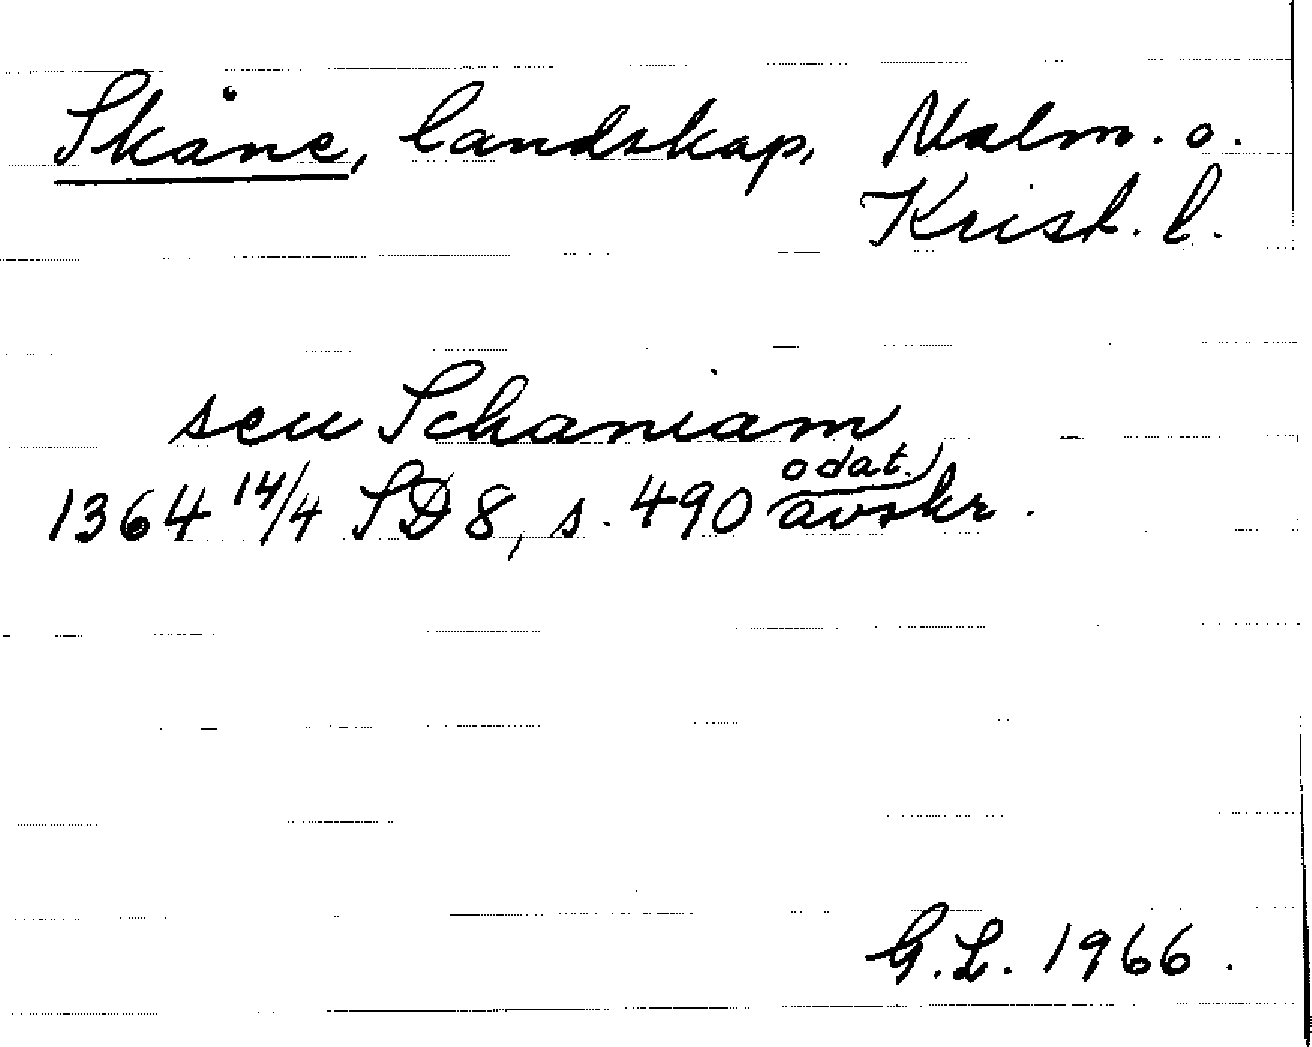 Skåne, landskap, Malm. o.
Krist. l.
seu Schaniam
odat.
1364 14/4 SD 8, s. 490 avskr.
G.L. 1966.